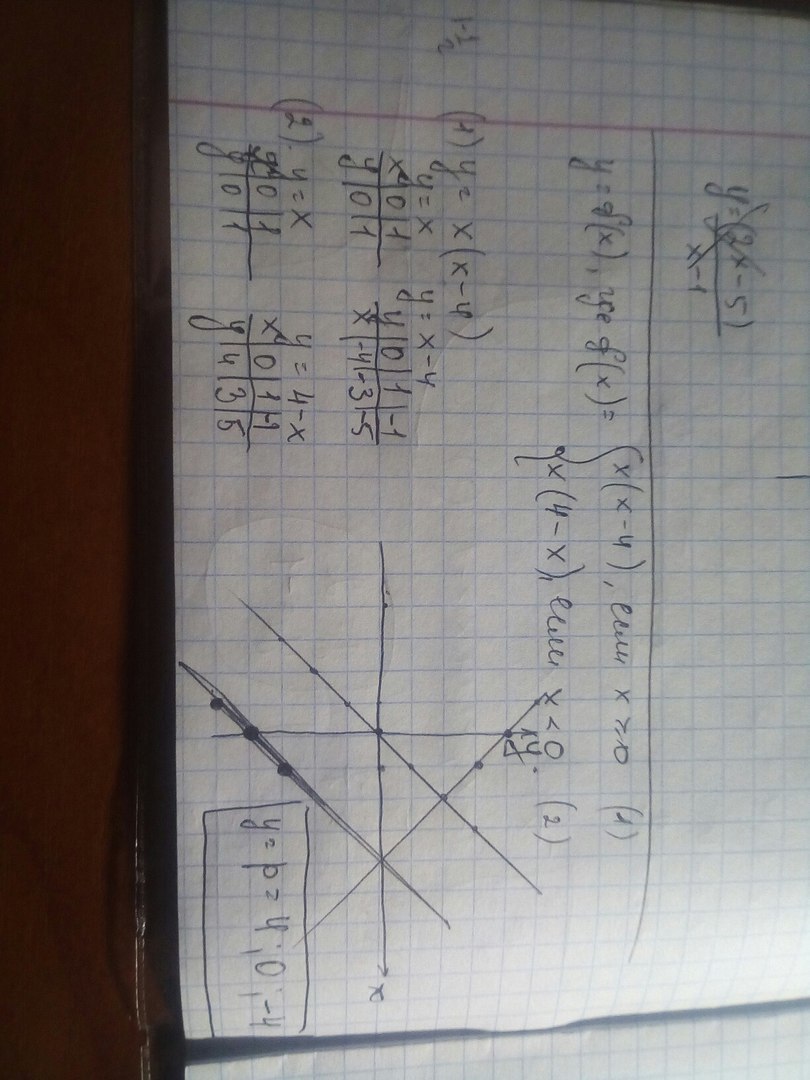 y = (2x - 5)
x - 1
y = f(x), где f(x) = { x(x-4), если x ≥ 0 (1)
x(4-x), если x < 0. (2)
(1) y = x(x-4)
y = x y = x-4
x | 0 | 1 y | 0 | 1 | -1
y | 0 | 1 x | -4 | -3 | -5
(2). y = x y = 4-x
x | 0 | 1 x | 0 | 1 | -1
y | 0 | 1 y | 4 | 3 | 5
y
x
y = p = 4; 0; -4